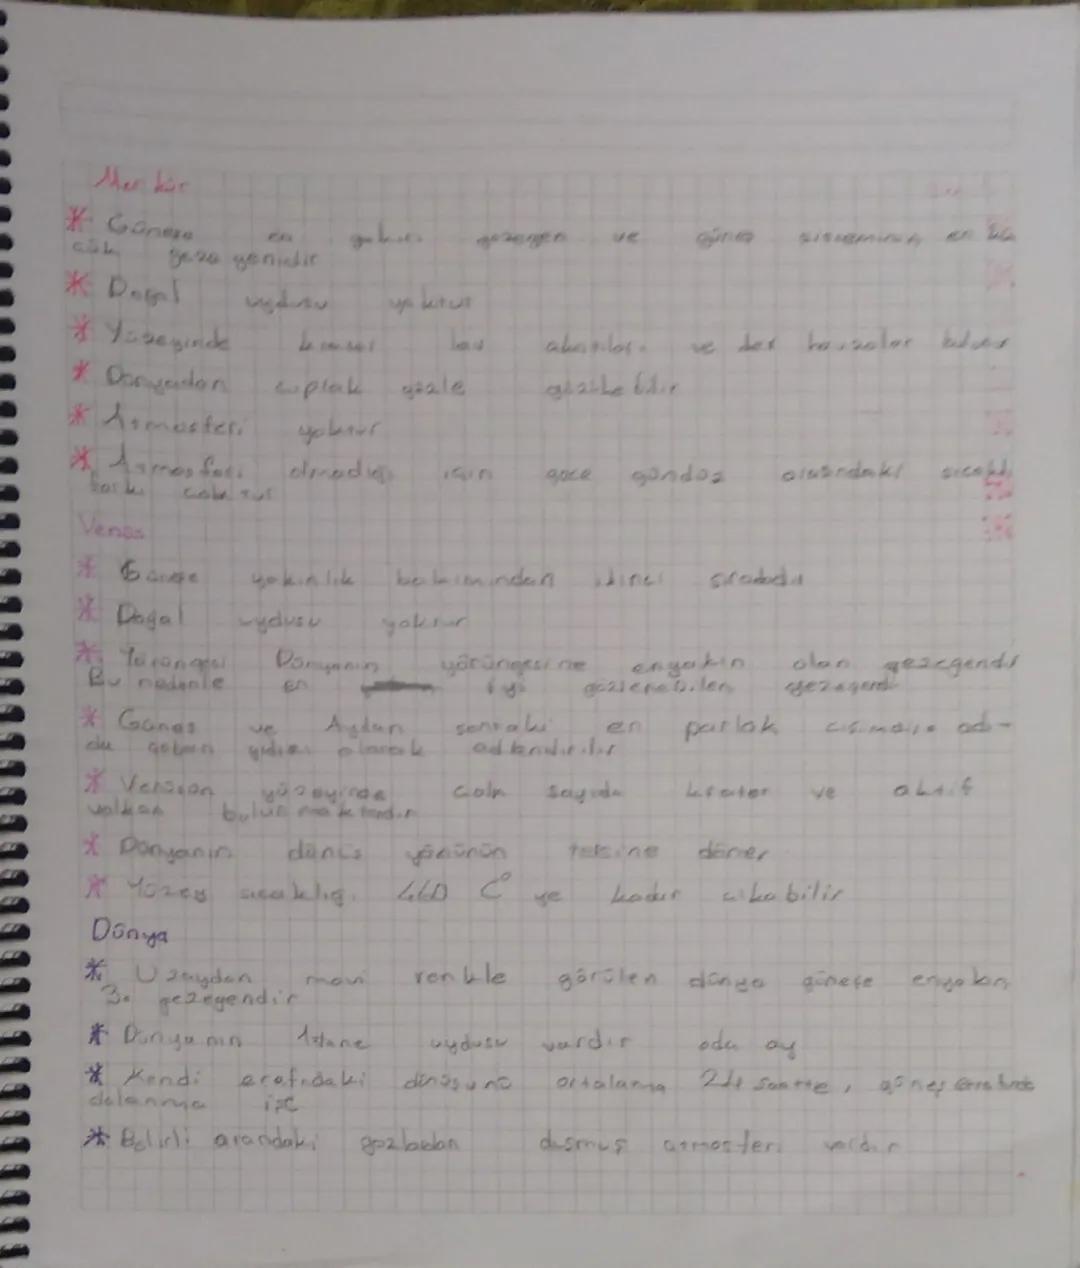 Merkür
* Güneşe en yakın gezegen ve güneş sisteminin en kü
çük gezegenidir
* Doğal uydusu yoktur
* Yüzeyinde lav ve
* Dünyadan çıplak gözle
* Atmosferi yoktur
* Atmosferi olmadığı için gece gündüz arasındaki sıcaklık
farkı çoktur
Venüs
* Güneşe yakınlık bakımından ikinci sıradadır
* Doğal uydusu yoktur
* Yörüngesi Dünyanın yörüngesine enyakın olan gezegendir
Bu nedenle en iyi gözlenebilen gezegendir
* Güneş ve Aydan sonraki en parlak cisimdir. ad-
olarak adlandırılır
* Venüsün yüzeyinde çok sayıda krater ve aktif
volkan bulunmaktadır
* Dünyanın dönüş yönünün tersine döner
* Yüzey sıcaklığı 460 C° ye kadar çıkabilir
Dünya
* Uzaydan mavi renkle görülen dünya güneşe enyakın
3. gezegendir
* Dünyanın 1 tane uydusu vardır oda ay
* Kendi dönüşünü ortalama 24 saatte, güneş
dolanma ise
* Belirli arandaki gazlardan atmosferi vardır